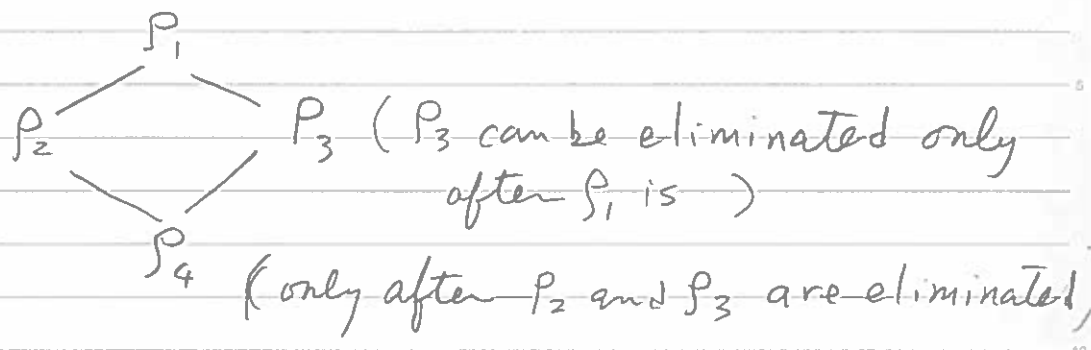 ρ₁
ρ₂
ρ₃ (ρ₃ can be eliminated only
after ρ₁ is )
ρ₄
(only after ρ₂ and ρ₃ are eliminated)